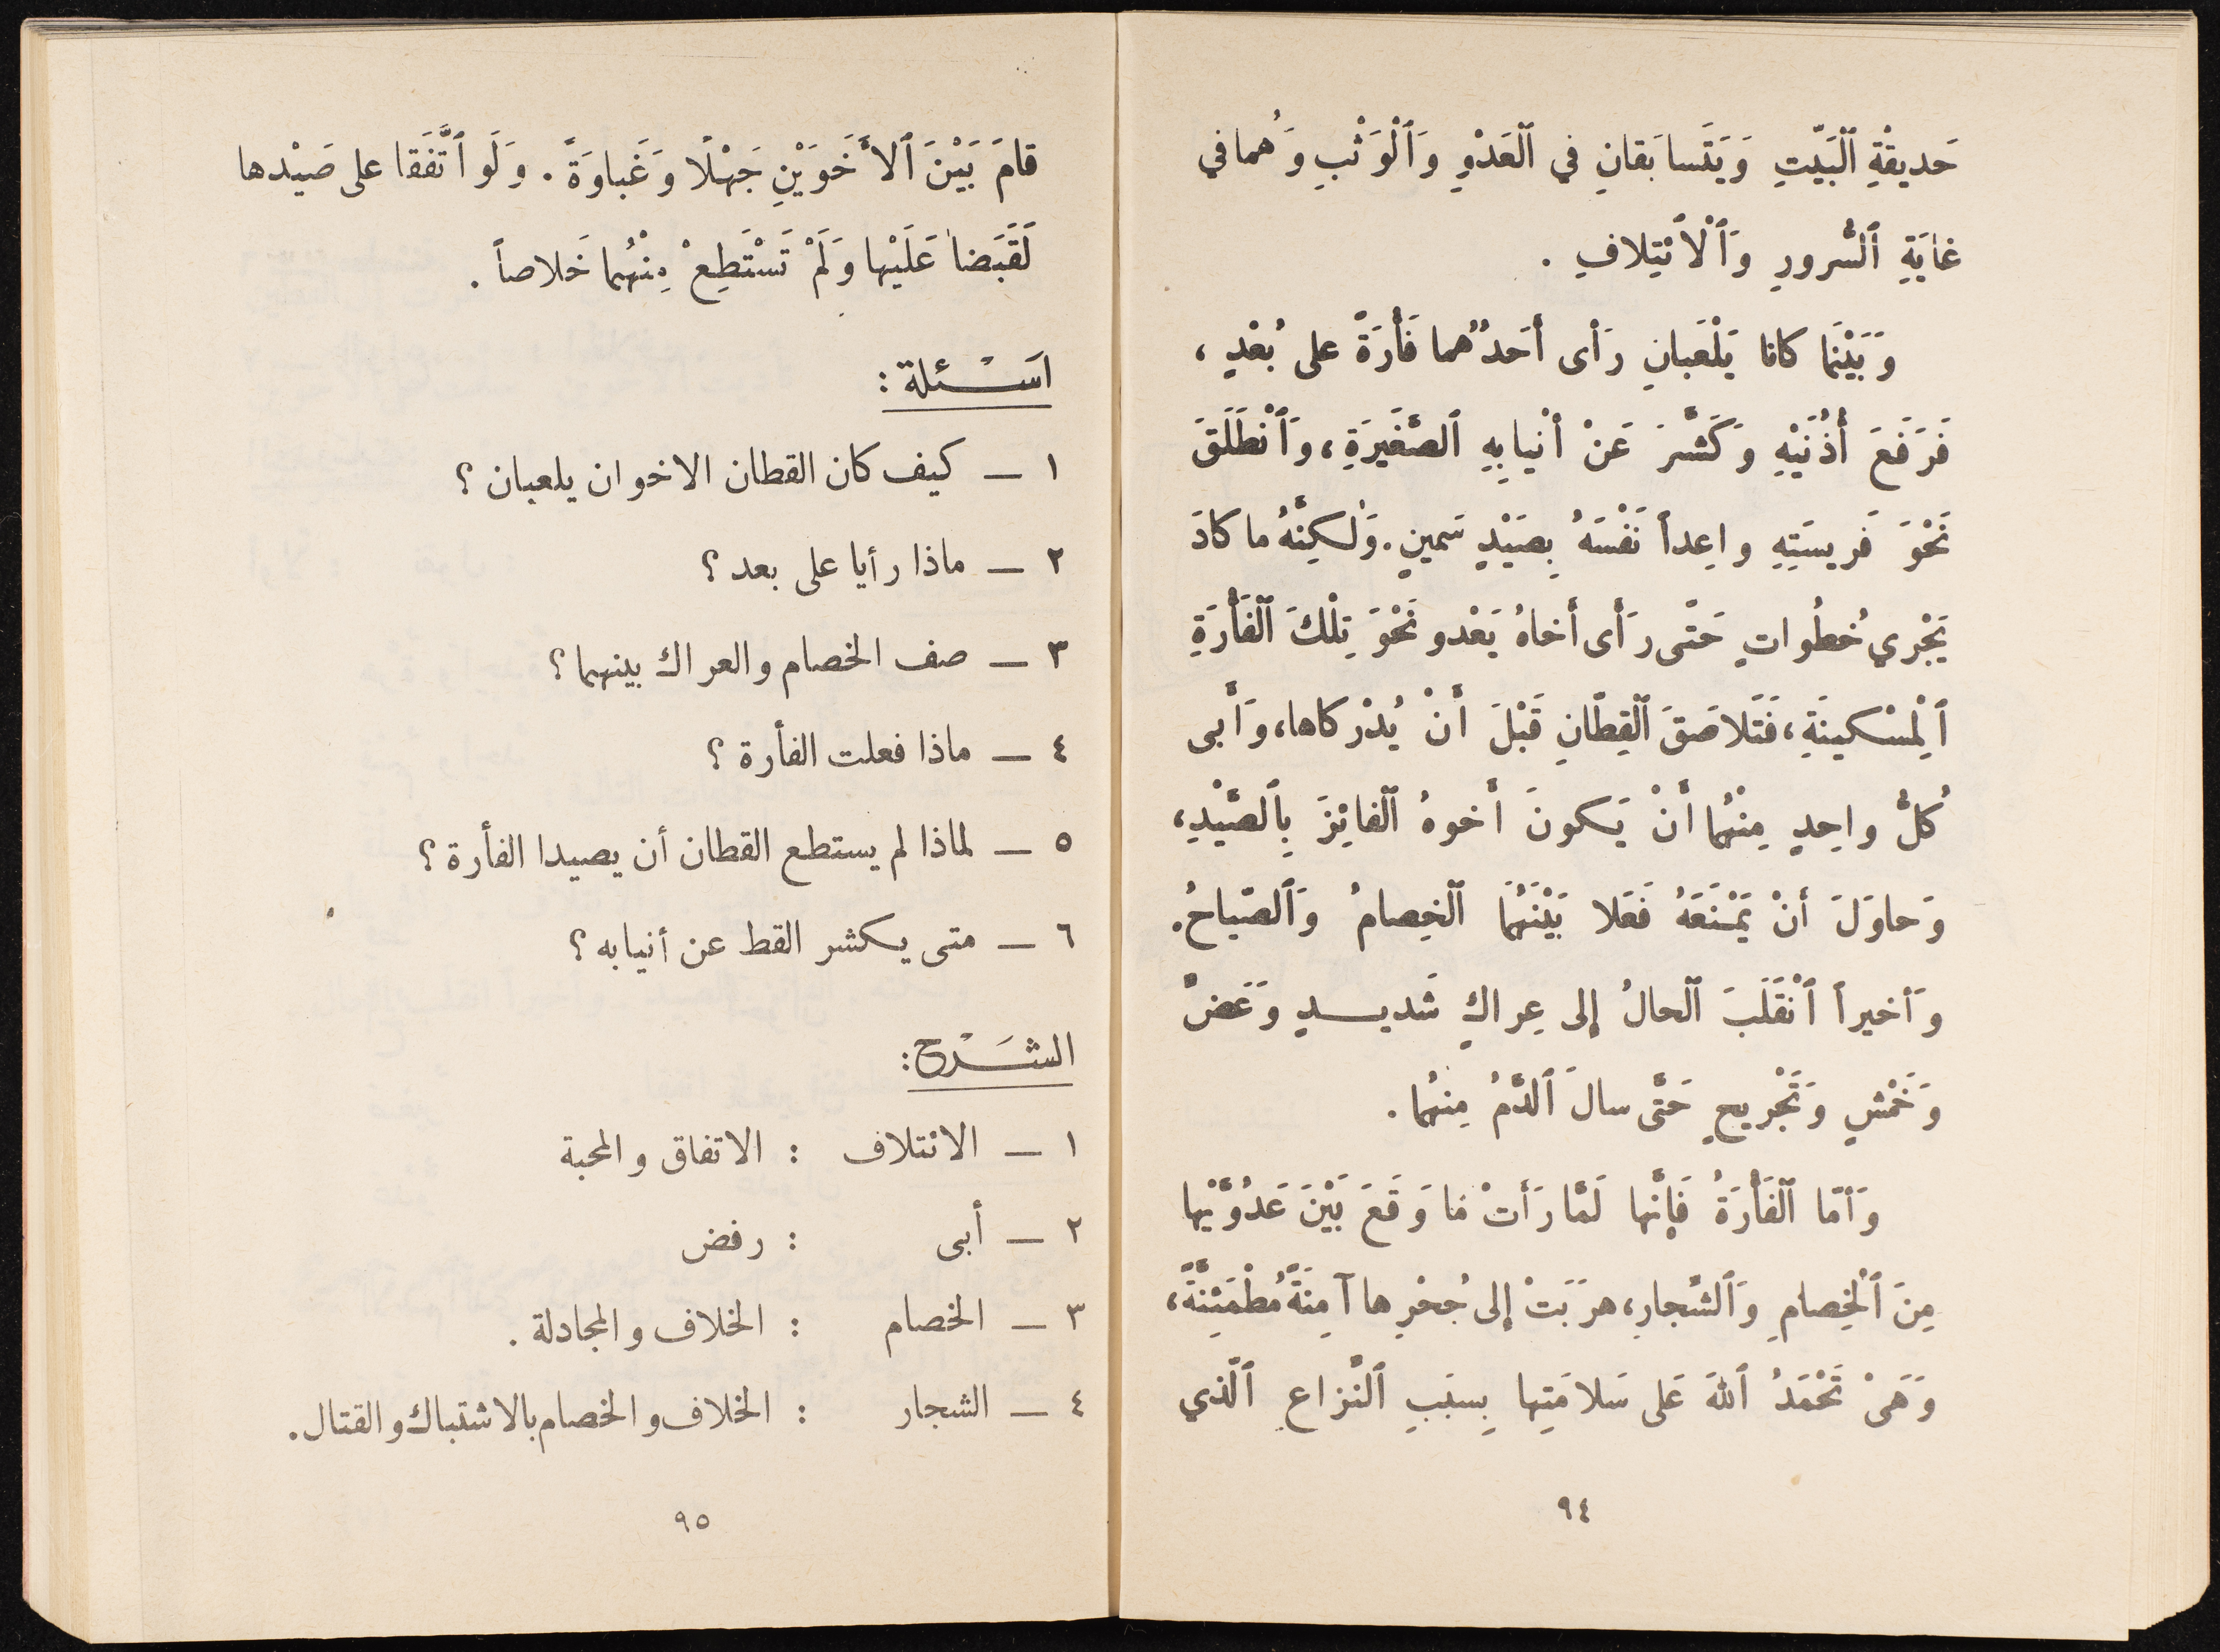 حَديقَةِ ٱلْبَيْتِ وَيَتَسابَقانِ في ٱلْعَدْوِ وَٱلْوَثْبِ وَهُما في
غايَةِ ٱلسُّرورِ وَٱلْاَئْتِلافِ .
وَبَيْنَما كانا يَلْعَبانِ رَأى أَحَدُهُما فَأْرَةً على بُعْدٍ ،
فَرَفَعَ أُذُنَيْهِ وَكَشَّرَ عَنْ أنْيابِهِ ٱلصَّغيرَةِ، وَٱنْطَلَقَ
نَحْوَ فَريسَتِهِ واعِداً نَفْسَهُ بِصَيْدٍ سَمينٍ. وَلٰكِنَّهُ ما كادَ
يَجْري خُطُواتٍ حَتّى رَأَى أَخاهُ يَعْدو نَحْوَ تِلْكَ ٱلْفَأْرَةِ
ٱلْمِسْكينَةِ، فَتَلاصَقَ ٱلْقِطّانِ قَبْلَ أَنْ يُدْرِكاها، وَأَبى
كُلُّ واحِدٍ مِنْهُما أَنْ يَكونَ أَخوهُ ٱلْفائِزَ بِٱلصَّيْدِ،
وَحاوَلَ أنْ يَمْنَعَهُ فَعَلا بَيْنَهُما ٱلْخِصامُ وَٱلصِّياحُ.
وَأخيراً ٱنْقَلَبَ ٱلْحالُ إلى عِراكٍ شَديدٍ وَعَضٍّ
وَخَمْشٍ وَتَجْريحٍ حَتَّى سالَ ٱلدَّمُ مِنهُما .
وَأمّا ٱلْفَأْرَةُ فَإِنَّها لَمَّا رَأَتْ ما وَقَعَ بَيْنَ عَدُوَّيْها
مِنَ ٱلْخِصامِ وَٱلشِّجارِ، هرَبَتْ إلى جُحْرِها آمِنَةً مُطْمَئِنَّةً،
وَهَيْ تَحْمَدُ ٱللهَ عَلى سَلامَتِها بِسبَبِ ٱلنِّزاعِ ٱلَّذي
٩٤
قامَ بَيْنَ ٱلأَخَوَيْنِ جَهْلًا وَغَباوَةً . وَلَو ٱتَّفَقا على صَيْدها
لَقَبَضا عَلَيْها وَلَمْ تَسْتَطِعْ مِنْهُما خَلاصاً .
اسْئلة :
١ — كيف كان القطان الاخوان يلعبان ؟
٢ — ماذا رأيا على بعد ؟
٣ — صف الخصام والعراك بينهما ؟
٤ — ماذا فعلت الفأرة ؟
٥ — لماذا لم يستطع القطان أن يصيدا الفأرة ؟
٦ — متى يكشر القط عن أنيابه ؟
الشَرْح :
١ — الائتلاف : الاتفاق والمحبة
٢ — أبى : رفض
٣ — الخصام : الخلاف والمجادلة .
٤ — الشجار : الخلاف والخصام بالاشتباك والقتال .
٩٥